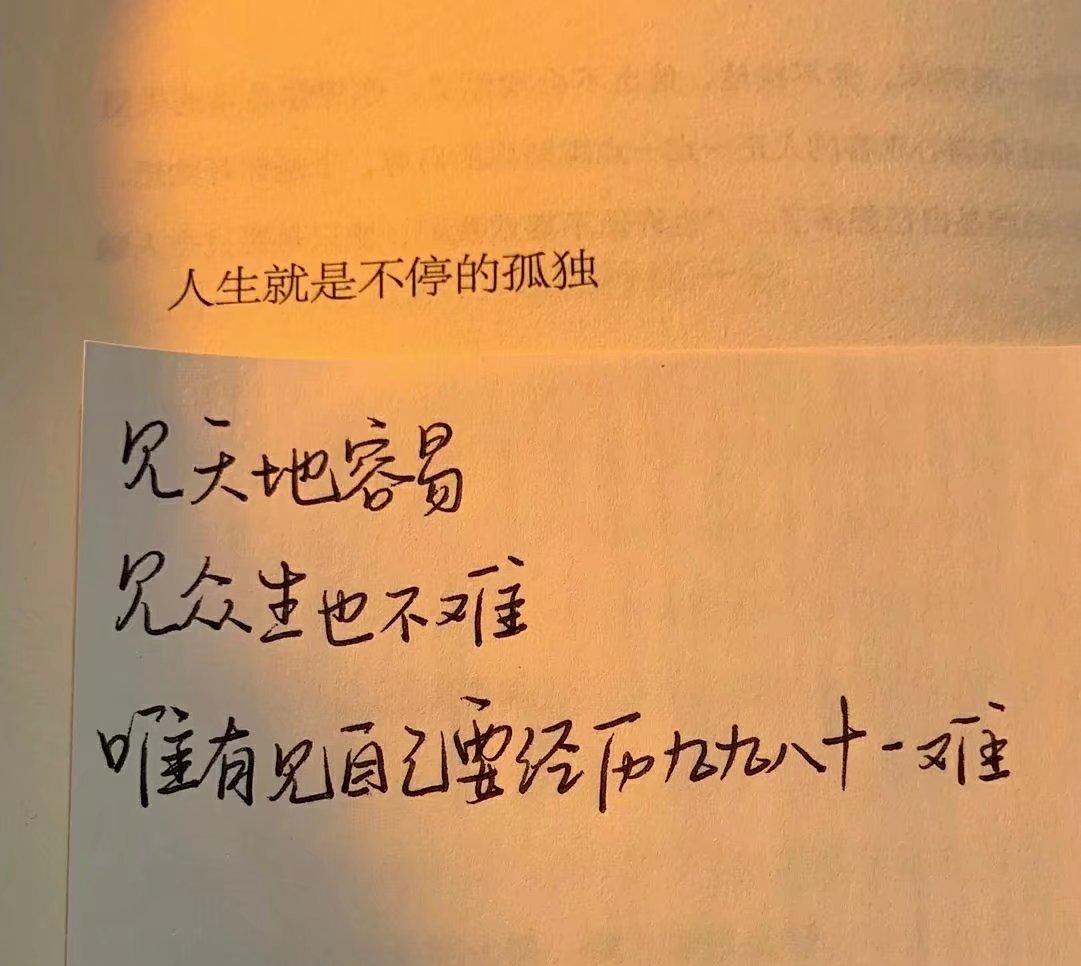 人生就是不停的孤独
见天地容易
见众生也不难
唯有见自己要经历九九八十一难